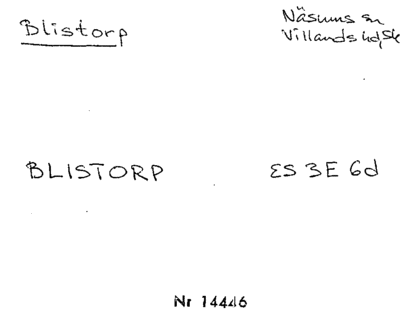 Blistorp
Näsums sn
Villands hd, Sk
BLISTORP
ES 3E 6d
Nr 14446